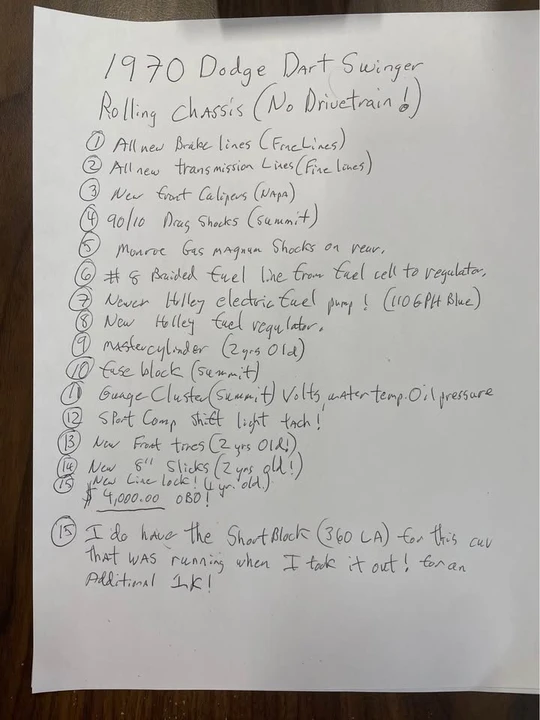 1970 Dodge Dart Swinger
Rolling Chassis (No Drivetrain!)
① All new Brake lines (Fine Lines)
② All new transmission Lines (Fine lines)
③ New front Calipers (NAPA)
④ 90/10 Drag Shocks (Summit)
⑤ Monroe Gas Magnum Shocks on rear.
⑥ # 8 Braided fuel line from fuel cell to regulator.
⑦ Newer Holley electric fuel pump! (110 GPH Blue)
⑧ New Holley fuel regulator.
⑨ Mastercylinder (2 yrs Old)
⑩ fuse block (Summit)
⑪ Guage Cluster (Summit) Volts, water temp. Oil pressure
⑫ Sport Comp Shift light tach!
⑬ New Front tires (2 yrs Old!)
⑭ New 8" Slicks (2 yrs old!)
⑮ New Line lock! (1 yr. old.)
$ 4,000.00 OBO!
⑮ I do have the Short Block (360 LA) for this car
that WAS running when I took it out! for an
Additional 1K!